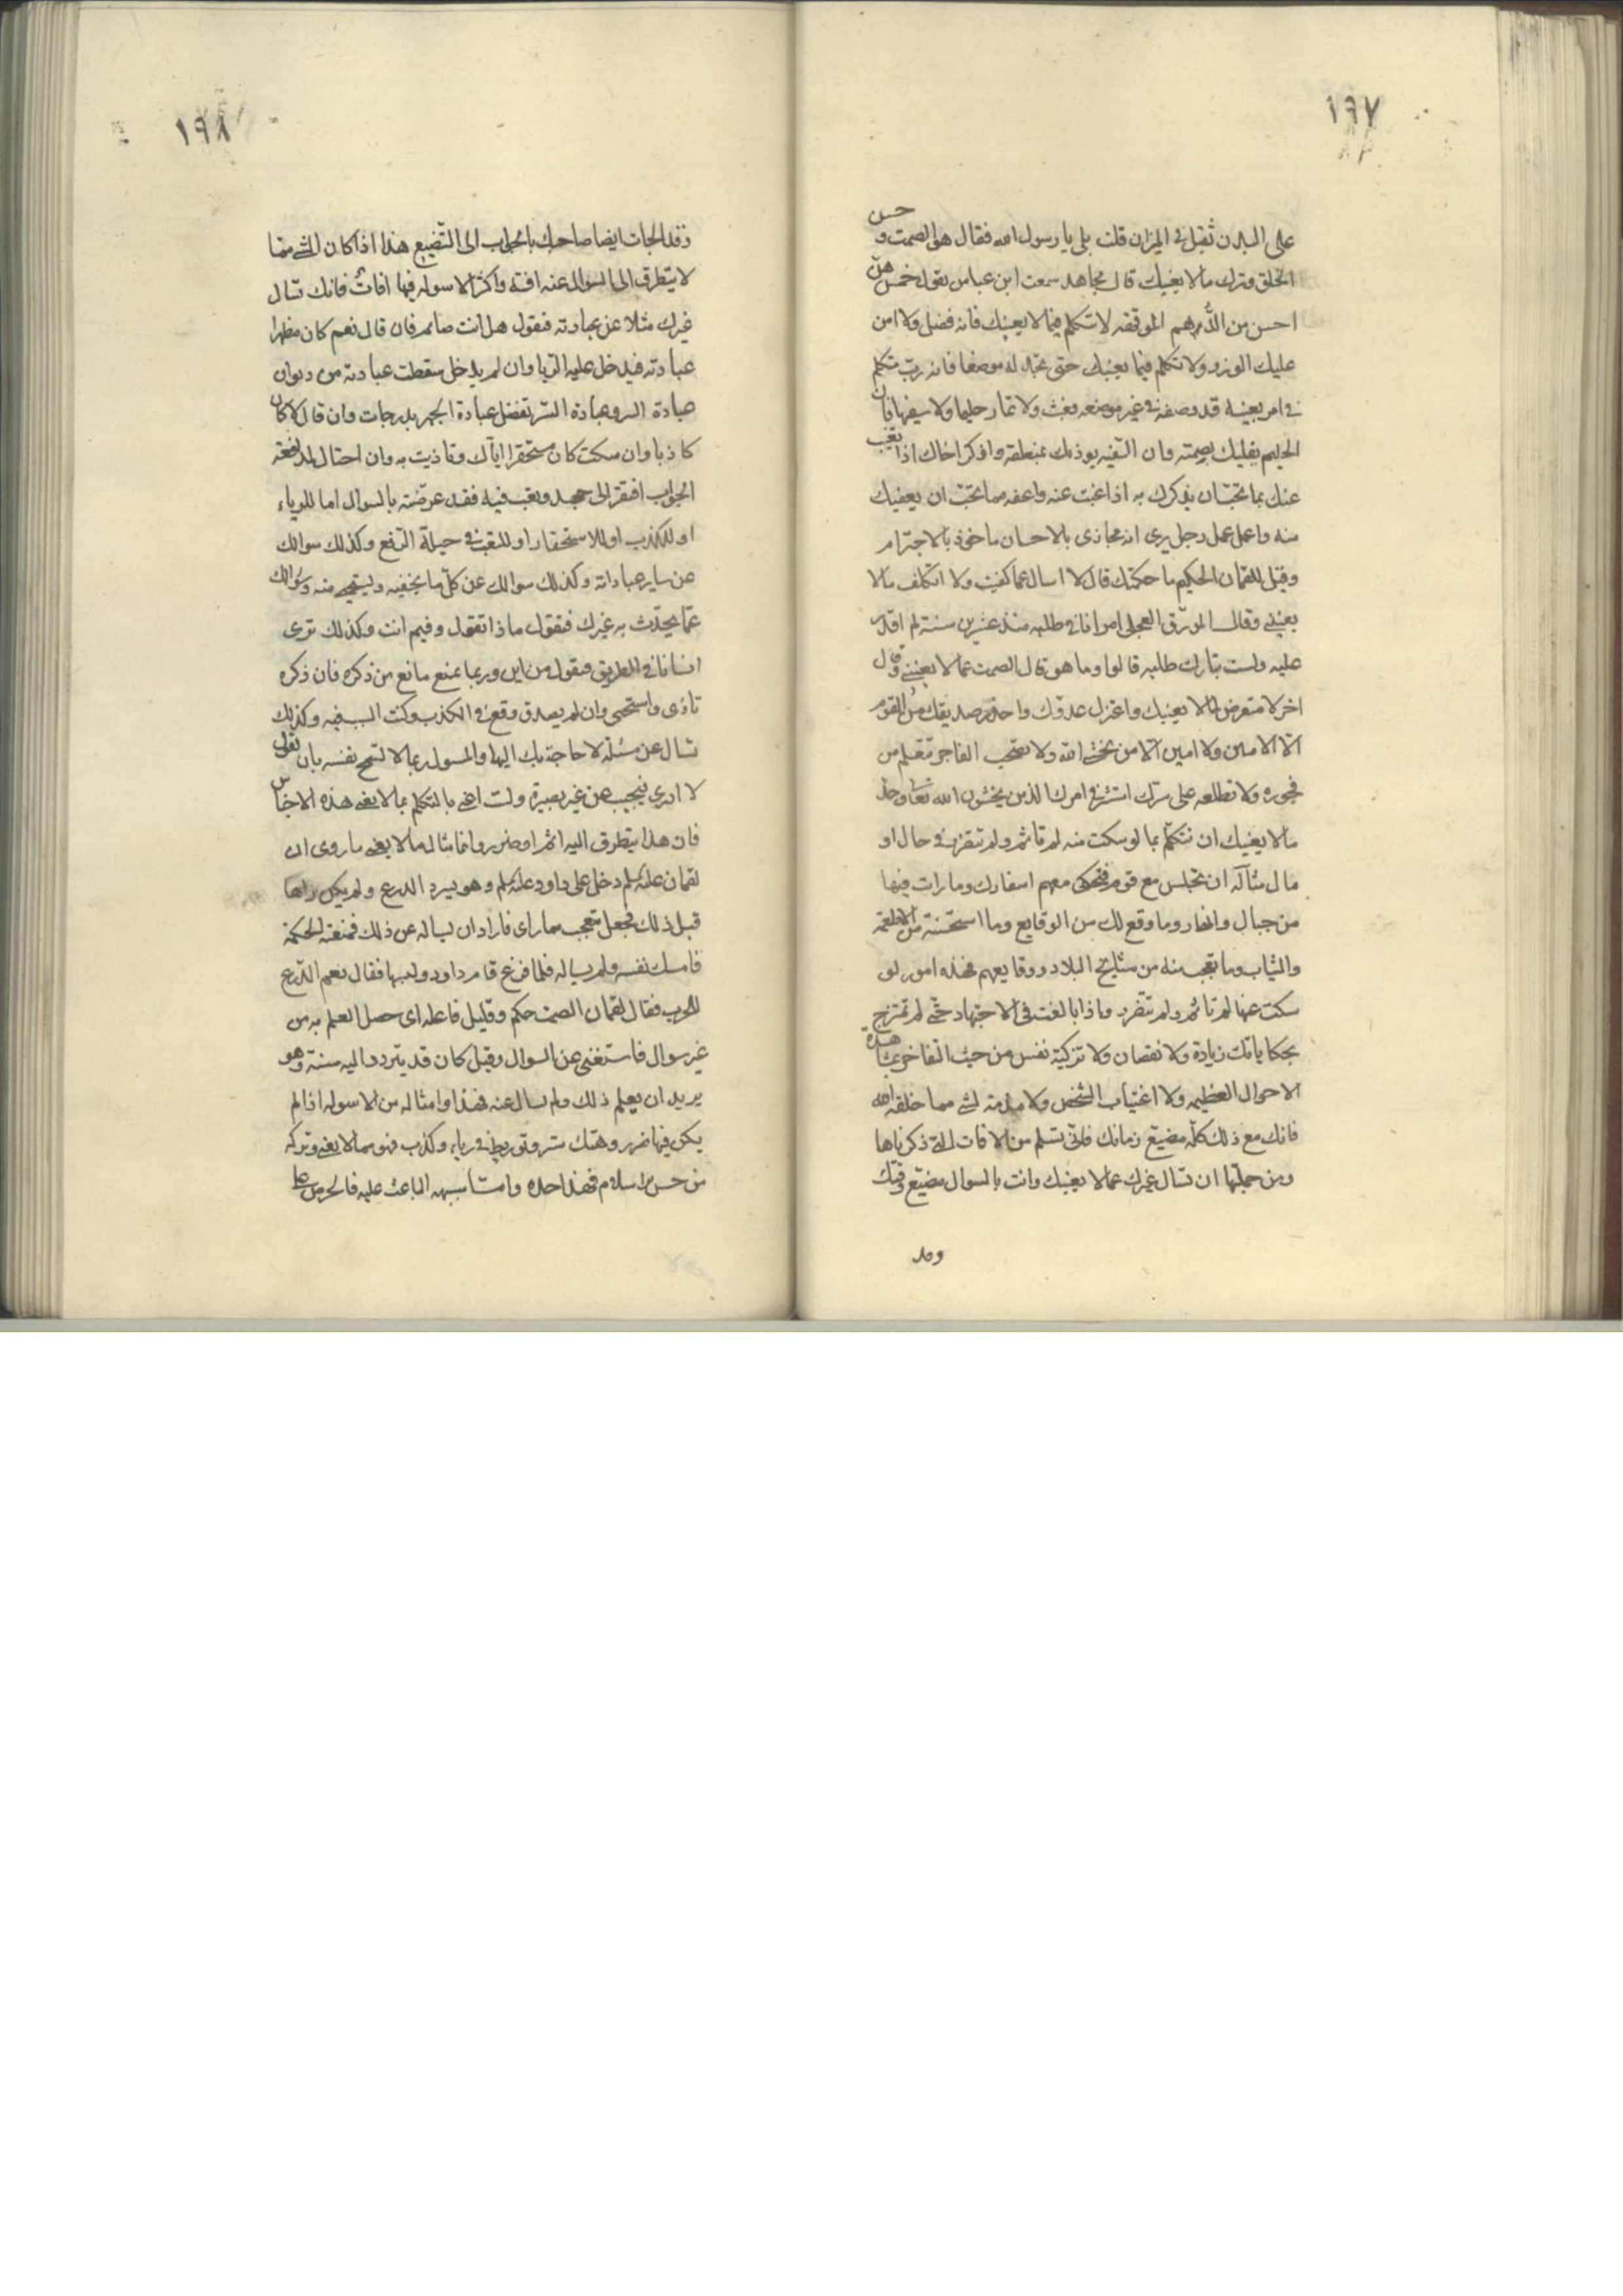 ١٩٧
على البدن ثقيل في الميزان قلت بلى يا رسول الله فقال هو الصمت و حسن
الخلق وترك مالا يعنيك قال مجاهد سمعت ابن عباس يقول خمس هن
احسن من الدرهم الموقفه لا تتكلم فيما لا يعنيك فانه فضل ولا امن
عليك الوزر ولا تتكلم فيما يعنيك حتى تجد له موضعا فانه رب متكلم
في امر يعنيه قد وضعه في غير موضعه فعنت ولا تمار حليما ولا سفيها فان
الحليم يقليك بصمته وان السفيه يوذيك بمنطقه واذكر اخاك اذا تغيب
عنك بما تحب ان يذكرك به اذا غبت عنه واعفه مما تحب ان يعفيك
منه واعمل عمل رجل يرى انه مجازى بالاحسان ماخوذ بالاجترام
وقيل للقمان الحكيم ما حكمتك قال لا اسال عما كفيت ولا اتكلف مالا
يعنيني وقال المورق العجلى امر انا في طلبه منذ عشرين سنة لم اقدر
عليه ولست بتارك طلبه قالوا وما هو قال الصمت عما لا يعنيني وقال
اخر لا تتعرض لما لا يعنيك واعتزل عدوك واحذر صديقك من القوم
الا الامين ولا امين الا من يخشى الله ولا تصحب الفاجر فتعلم من
فجوره ولا تطلعه على سرك استشر في امرك الذين يخشون الله تعالى وحد
مالا يعنيك ان تتكلم بما لو سكت منه لم تاثم ولم تتضرر في حال او
مال مثاله ان تجلس مع قوم فتحكى معهم اسفارك وما رات فيها
من جبال وانهار وما وقع لك من الوقايع وما استحسنته من الاطعمة
والثياب وما تعجب منه من مشايخ البلاد ووقايعهم فهذه امور لو
سكت عنها لم تاثم ولم تتضرر واذا بالغت في الاجتهاد حتى لم تمتزج
بحكاياتك زيادة ولا نقصان ولا تزكية نفس من حيث التفاخر بمشاهدة
الاحوال العظيمه ولا اغتياب الشخص ولا مذمة لشى مما خلقه الله
فانك مع ذلك كله مضيع زمانك فانى تسلم من الافات التى ذكرناها
ومن جملتها ان تسال غيرك عما لا يعنيك وانت بالسوال مضيع وقتك
وقد
١٩٨
وقد الجات ايضا صاحبك بالجواب الى التضييع هذا اذا كان الشى مما
لا يتطرق الى السوال عنه افة واكثر الاسوله فيها افات فانك تسال
غيرك مثلا عن عبادته فتقول هل انت صايم فان قال نعم كان مظهرا
عبادته فيدخل عليه الريا وان لم يدخل سقطت عبادته من ديوان
عبادة السر وعبادة السر تفضل عبادة الجهر بدرجات وان قال لا كان
كاذبا وان سكت كان مستحقرا اياك وتاذيت به وان احتال لمدافعة
الجواب افتقر الى جهد وتعب فيه فقد عرضته بالسوال اما للرياء
او للكذب او للاستحقار او للتعب في حيلة الدفع وكذلك سوالك
عن ساير عباداته وكذلك سوالك عن كل ما يخفيه ويستحى منه وسوالك
عما يحدث به غيرك فتقول ماذا تقول وفيم انت وكذلك ترى
انسانا في الطريق فتقول من اين وربما يمنع مانع من ذكره فان ذكره
تاذى واستحيى وان لم يصدق وقع في الكذب وكنت السبب فيه وكذلك
تسال عن مسئلة لا حاجة بك اليها والمسول ربما لا تسمح نفسه بان يقول
لا ادرى فيجيب عن غير بصيرة ولست اعنى بالتكلم بما لا يعنى هذه الاجناس
فان هذا يتطرق اليه اثم او ضرر وانما مثال مالا يعنى ما روى ان
لقمان عليه السلم دخل على داود عليه السلم وهو يسرد الدرع ولم يكن راها
قبل ذلك فجعل يتعجب مما راى فاراد ان يساله عن ذلك فمنعته الحكمة
فامسك نفسه ولم يساله فلما فرغ قام داود ولبسها فقال نعم الدرع
للحرب فقال لقمان الصمت حكم وقليل فاعله اى حصل العلم به من
غير سوال فاستغنى عن السوال وقيل كان قد يتردد اليه سنة وهو
يريد ان يعلم ذلك ولم يسال عنه فهذا وامثاله من الاسوله اذا لم
يكن فيها ضرر وهتك ستر وتوريط في رياء وكذب فهو مما لا يعنى وتركه
من حسن اسلام فهذا حده واما سببه الباعث عليه فالحرص على